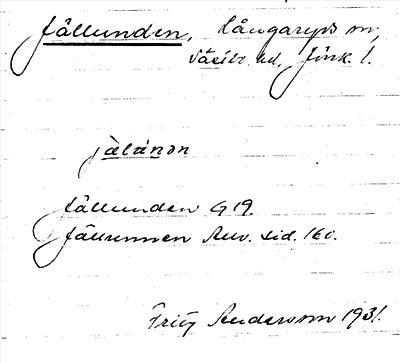 Jällunden, Långaryds sn,
Västbo hd, Jönk. l.
jàlánən
Jällunden G 19.
Jällunnen Anv. sid. 160.
Fritz Andersson 1931.